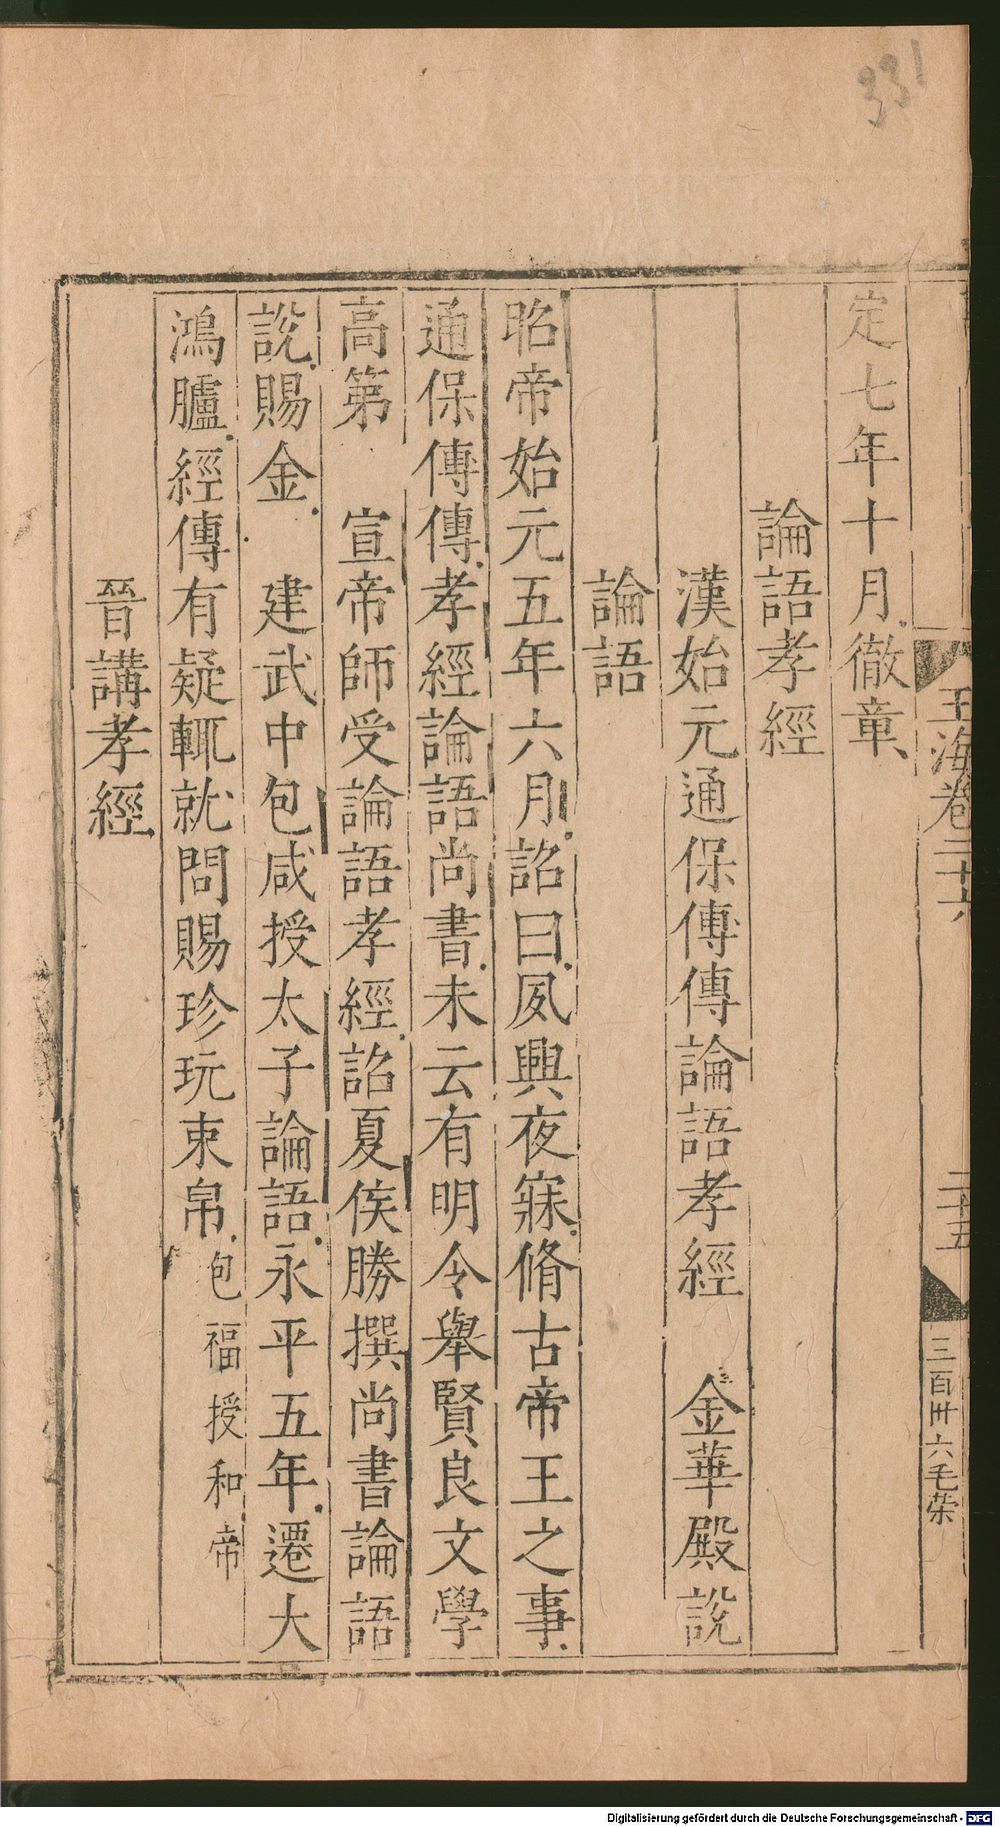 331
定七年十月徹章
論語孝經
漢始元通保傳傳論語孝經 金華殿說
論語
昭帝始元五年六月詔曰夙興夜寐脩古帝王之事
通保傳傳孝經論語尚書未云有明令舉賢良文學
高第 宣帝師受論語孝經詔夏侯勝撰尚書論語
說賜金 建武中包咸授太子論語永平五年遷大
鴻臚經傳有疑輒就問賜珍玩束帛包福授和帝
晉講孝經
玉海卷二十六
二十五
三百卅六毛榮
Digitalisierung gefördert durch die Deutsche Forschungsgemeinschaft - DFG